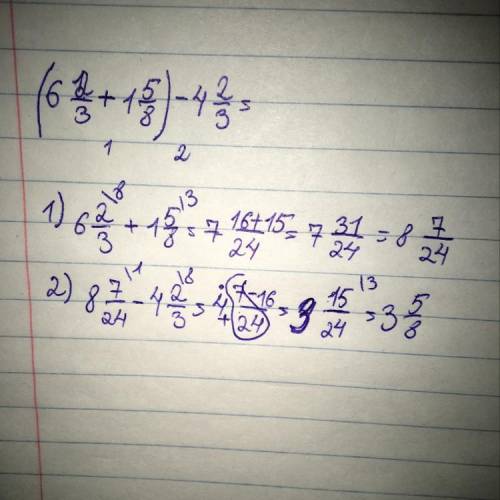 (6 2/3 + 1 5/8) - 4 2/3 =
1 2
1) 6 2/3 \8 + 1 5/8 \3 = 7 16+15/24 = 7 31/24 = 8 7/24
2) 8 7/24 \1 - 4 2/3 \8 = 4 7-16/24 = 3 15/24 \3 = 3 5/8